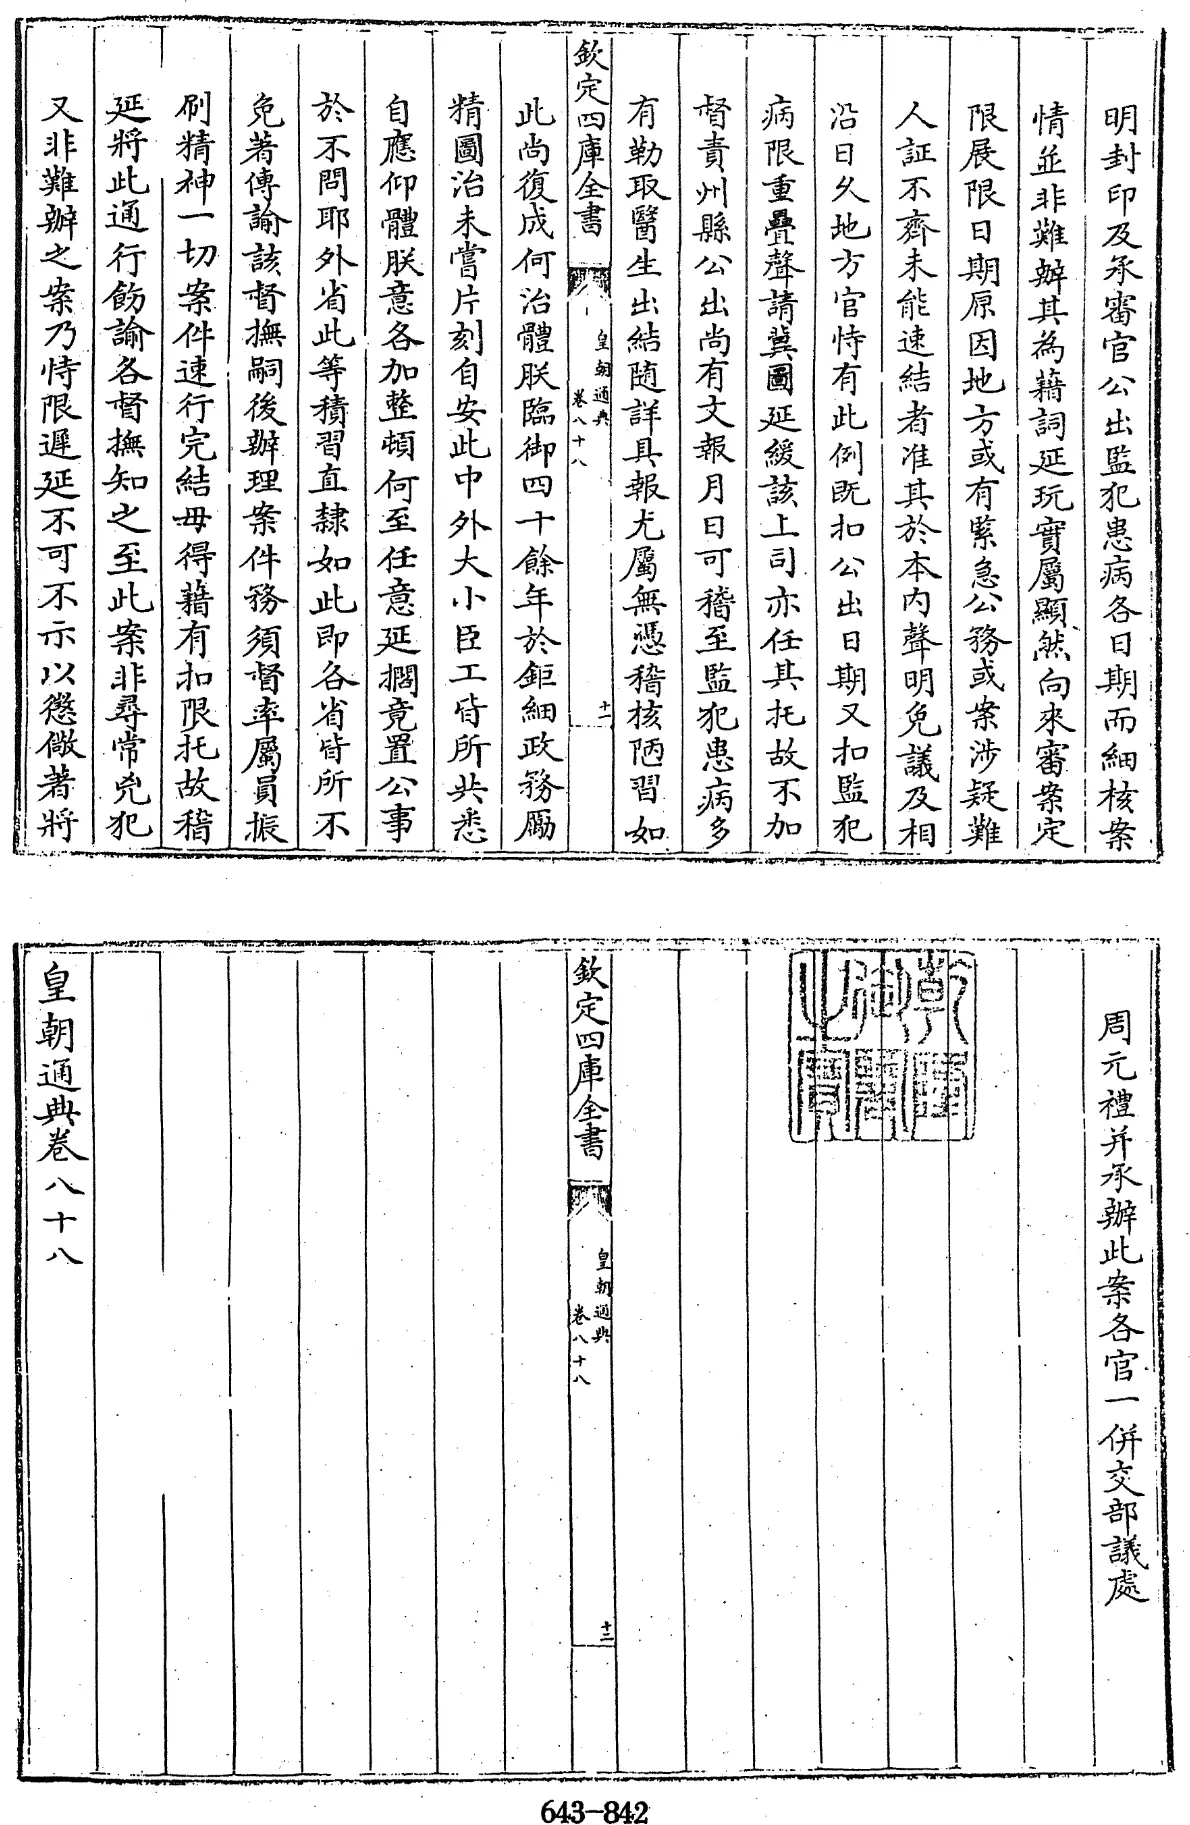 明封印及承審官公出監犯患病各日期而細核案
情並非難辦其為藉詞延玩實屬顯然向來審案定
限展限日期原因地方或有緊急公務或案涉疑難
人証不齊未能速結者准其於本內聲明免議及相
沿日久地方官恃有此例既扣公出日期又扣監犯
病限重疊聲請冀圖延緩該上司亦任其托故不加
督責州縣公出尚有文報月日可稽至監犯患病多
有勒取醫生出結随詳具報尤屬無憑稽核陋習如
欽定四庫全書
皇朝通典
卷八十八
十一
此尚復成何治體朕臨御四十餘年於鉅細政務勵
精圖治未嘗片刻自安此中外大小臣工皆所共悉
自應仰體朕意各加整頓何至任意延擱竟置公事
於不問耶外省此等積習直隸如此即各省皆所不
免著傳諭該督撫嗣後辦理案件務須督率屬員振
刷精神一切案件速行完結毋得藉有扣限托故稽
延將此通行飭諭各督撫知之至此案非尋常兇犯
又非難辦之案乃恃限遲延不可不示以懲儆著將
周元禮并承辦此案各官一併交部議處
乾隆
御覽
之寶
欽定四庫全書
皇朝通典
卷八十八
十二
皇朝通典卷八十八
643-842